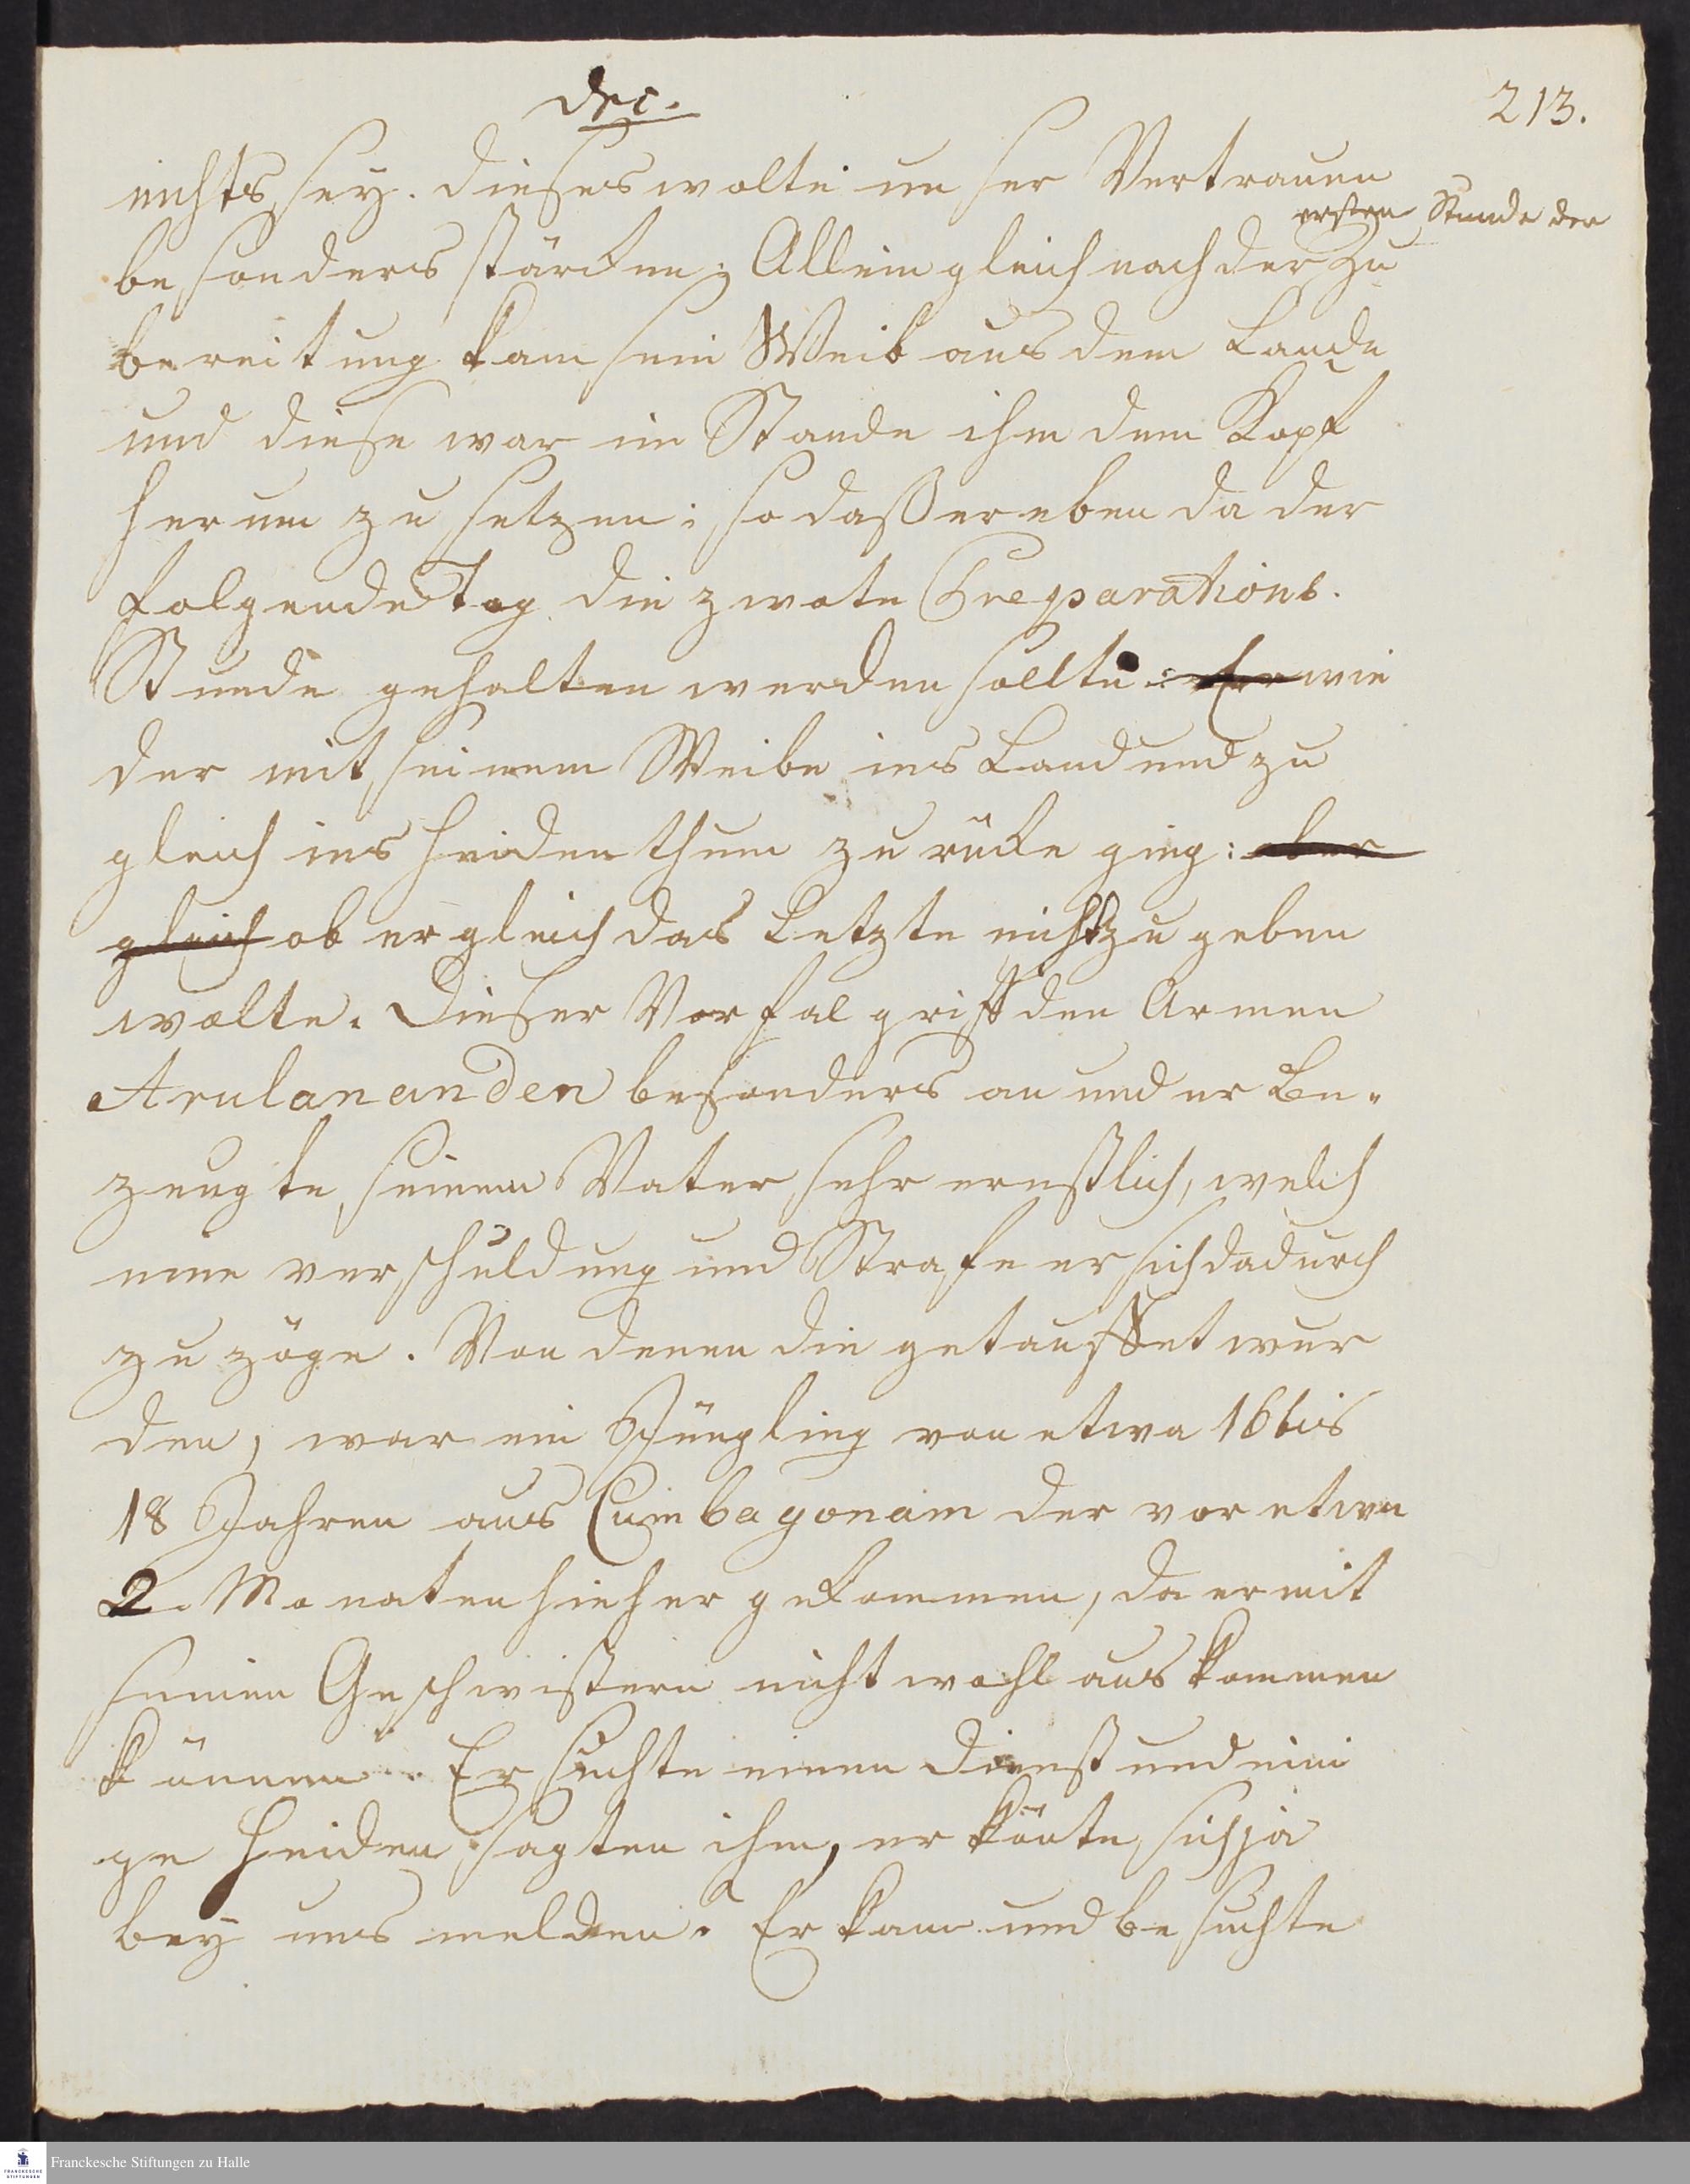 Dec.
213.
nichts sey. Dieses wolte unser Vertrauen
ersten Stunde der
besonders stärcken; Allein gleich nach der Zu
bereitung kam sein Weib aus dem Lande
und diese war im Stande ihm den Kopf
herum zu setzen: so daß er eben da der
folgende Tag die zwote Preparations.
Stunde gehalten werden sollte: Er wie
der mit seinem Weibe ins Land und zu
gleich ins Heidenthum zurücke ging: aber
gleich ob er gleich das Letzte nicht zugeben
wolte. Dieser Vorfal griff den Armen
Arulananden besonders an und er Be-
zeugte seinem Vater sehr ernstlich, welch
eine verschuldung und Strafe er sich dadurch
zu zöge. Von denen die getauffet wur
den, war ein Jüngling von etwa 16 bis
18 Jahren aus Cumbagonam der vor etwa
2. Monaten hieher gekommen, da er mit
seinen Geschwistern nicht wohl auskommen
können. Er suchte einen Dienst und eini
ge Heiden sagten ihm, er könte sich ja
bey uns melden. Er kam und besuchte
Franckesche Stiftungen zu Halle
FRANCKESCHE
STIFTUNGEN